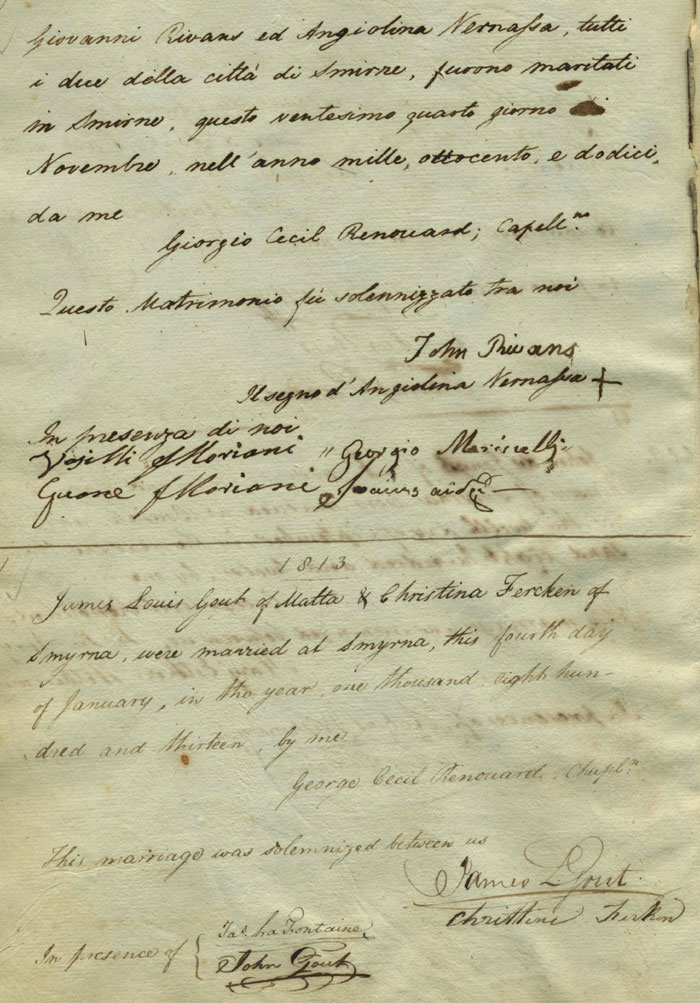 Giovanni Rivans ed Angiolina Vernassa, tutti
i due della città di Smirne, furono maritati
in Smirne, questo ventesimo quarto giorno di
Novembre, nell'anno mille, ottocento, e dodici,
da me
Giorgio Cecil Renouard; Capell.no
Questo Matrimonio fù solennizzato tra noi
John Rivans
Il segno d'Angiolina Vernassa +
In presenza di noi
Moriani " Georgio
Moriani
1813
James Louis Gout of Malta & Christina Fercken of
Smyrna, were married at Smyrna, this fourth day
of January, in the year, one thousand eight hun-
dred and thirteen, by me
George Cecil Renouard. Chapl.n
This marriage was solemnized between us
James L Gout.
Christine Ferken
In presence of { Jas. La Fontaine,
John Gout